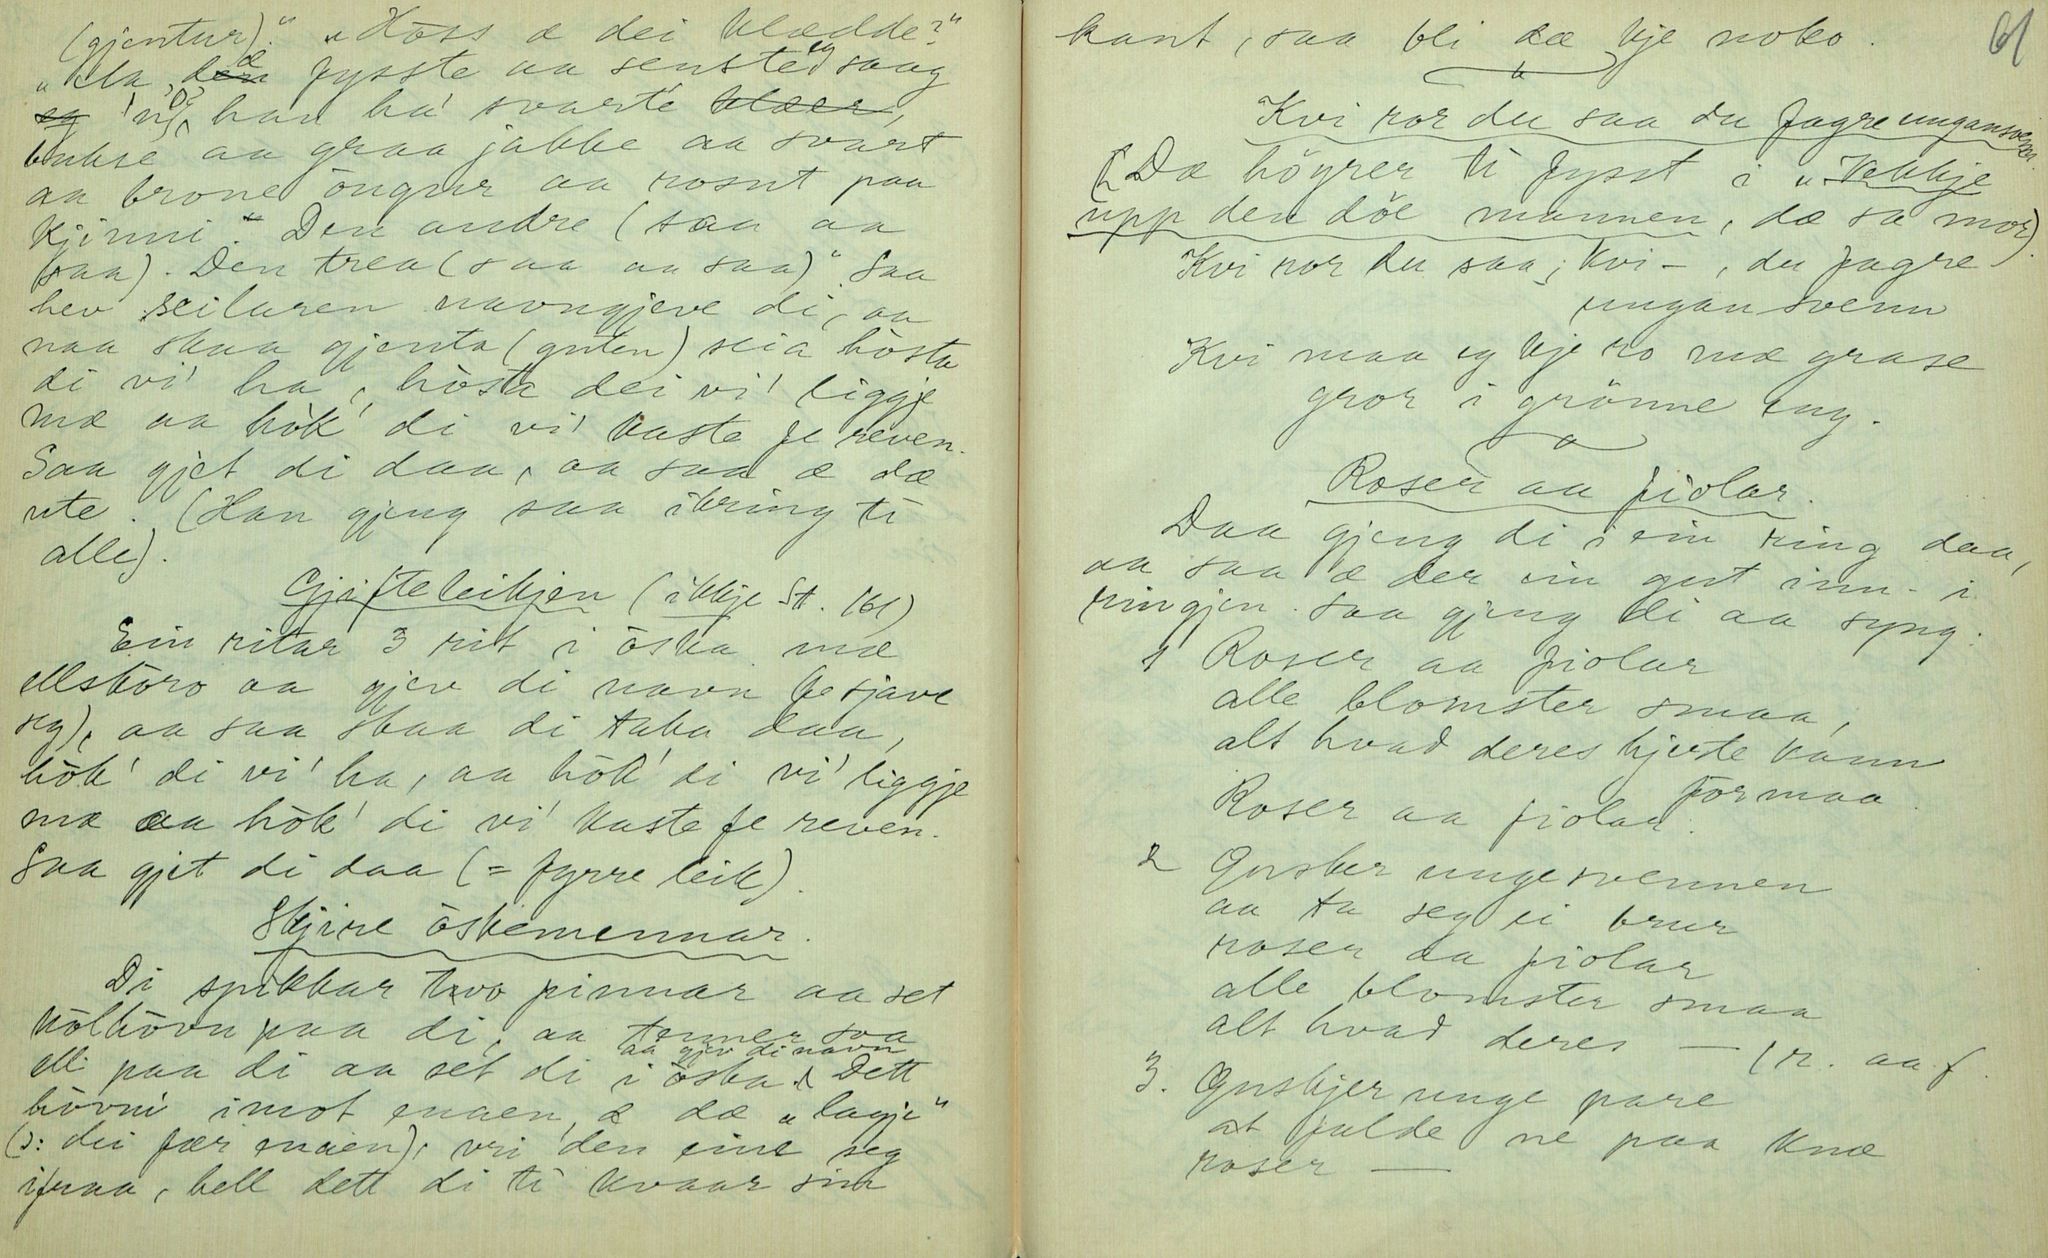 (gjentur)." „Höss æ dei klædde?"
„Ha, dæ fysste aa senste eg saag
va, han ha' svarte klær,
bukse aa graa jakke aa svart
aa brone öugur aa rosut paa
kjinni." Den andre (saa aa
saa). Den trea (saa aa saa)." Saa
hev seilaren navngjeve di, aa
naa skaa gjenta (guten) seia hösta
di vi' ha, hösta dei vi' liggje
mæ aa hök' di vi' kaste fe reven.
Saa gjet di daa, aa saa æ dæ
ute. (Han gjeng saa ikring ti
alle).
Gjifteleikjen (ikkje St. 161)
Ein ritar 3 rit i öska mæ
ellsköro aa gjev di navn (fe sjave
seg), aa saa skaa di taka daa,
hök' di vi' ha, aa hök' di vi' liggje
mæ aa hök' di vi' kaste fe reven.
Saa gjet di daa (= fyrre leik).
Skjire öskemennar.
Di spikkar two pinnar aa set
kölhövu paa di, aa tenner saa
aa gjev di navn
ell paa di aa set di i öska. Dett
hövui imot enaen, æ dæ „lagje"
(ɔ: dei fær enaen), vri den eine seg
ifraa, hell dett di ti kvaar sin
61
kant, saa bli dæ kje noko.
Kvi ror du saa du fagre ungansvenn
(Dæ höyrer ti fysst i „Vekkje
upp den döe mannen, dæ sa mor).
Kvi ror du saa, kvi –, du fagre
ungan svenn
Kvi maa eg kje ro mæ grase
gror i grönne eng.
Roser aa fiolar.
Daa gjeng di i ein ring daa,
aa saa æ der ein gut inn i
ringjen. Saa gjeng di aa syng:
1 Roser aa fiolar
alle blomster smaa,
alt hvad deres hjerte kann
formaa.
Roser aa fiolar.
2 Ynsker unge svennen
aa ta seg ei brur
roser aa fiolar
alle blomster smaa
alt hvad deres — (r. aa f.
3. Ynskjer unge pare
at falde ne paa knæ
roser —